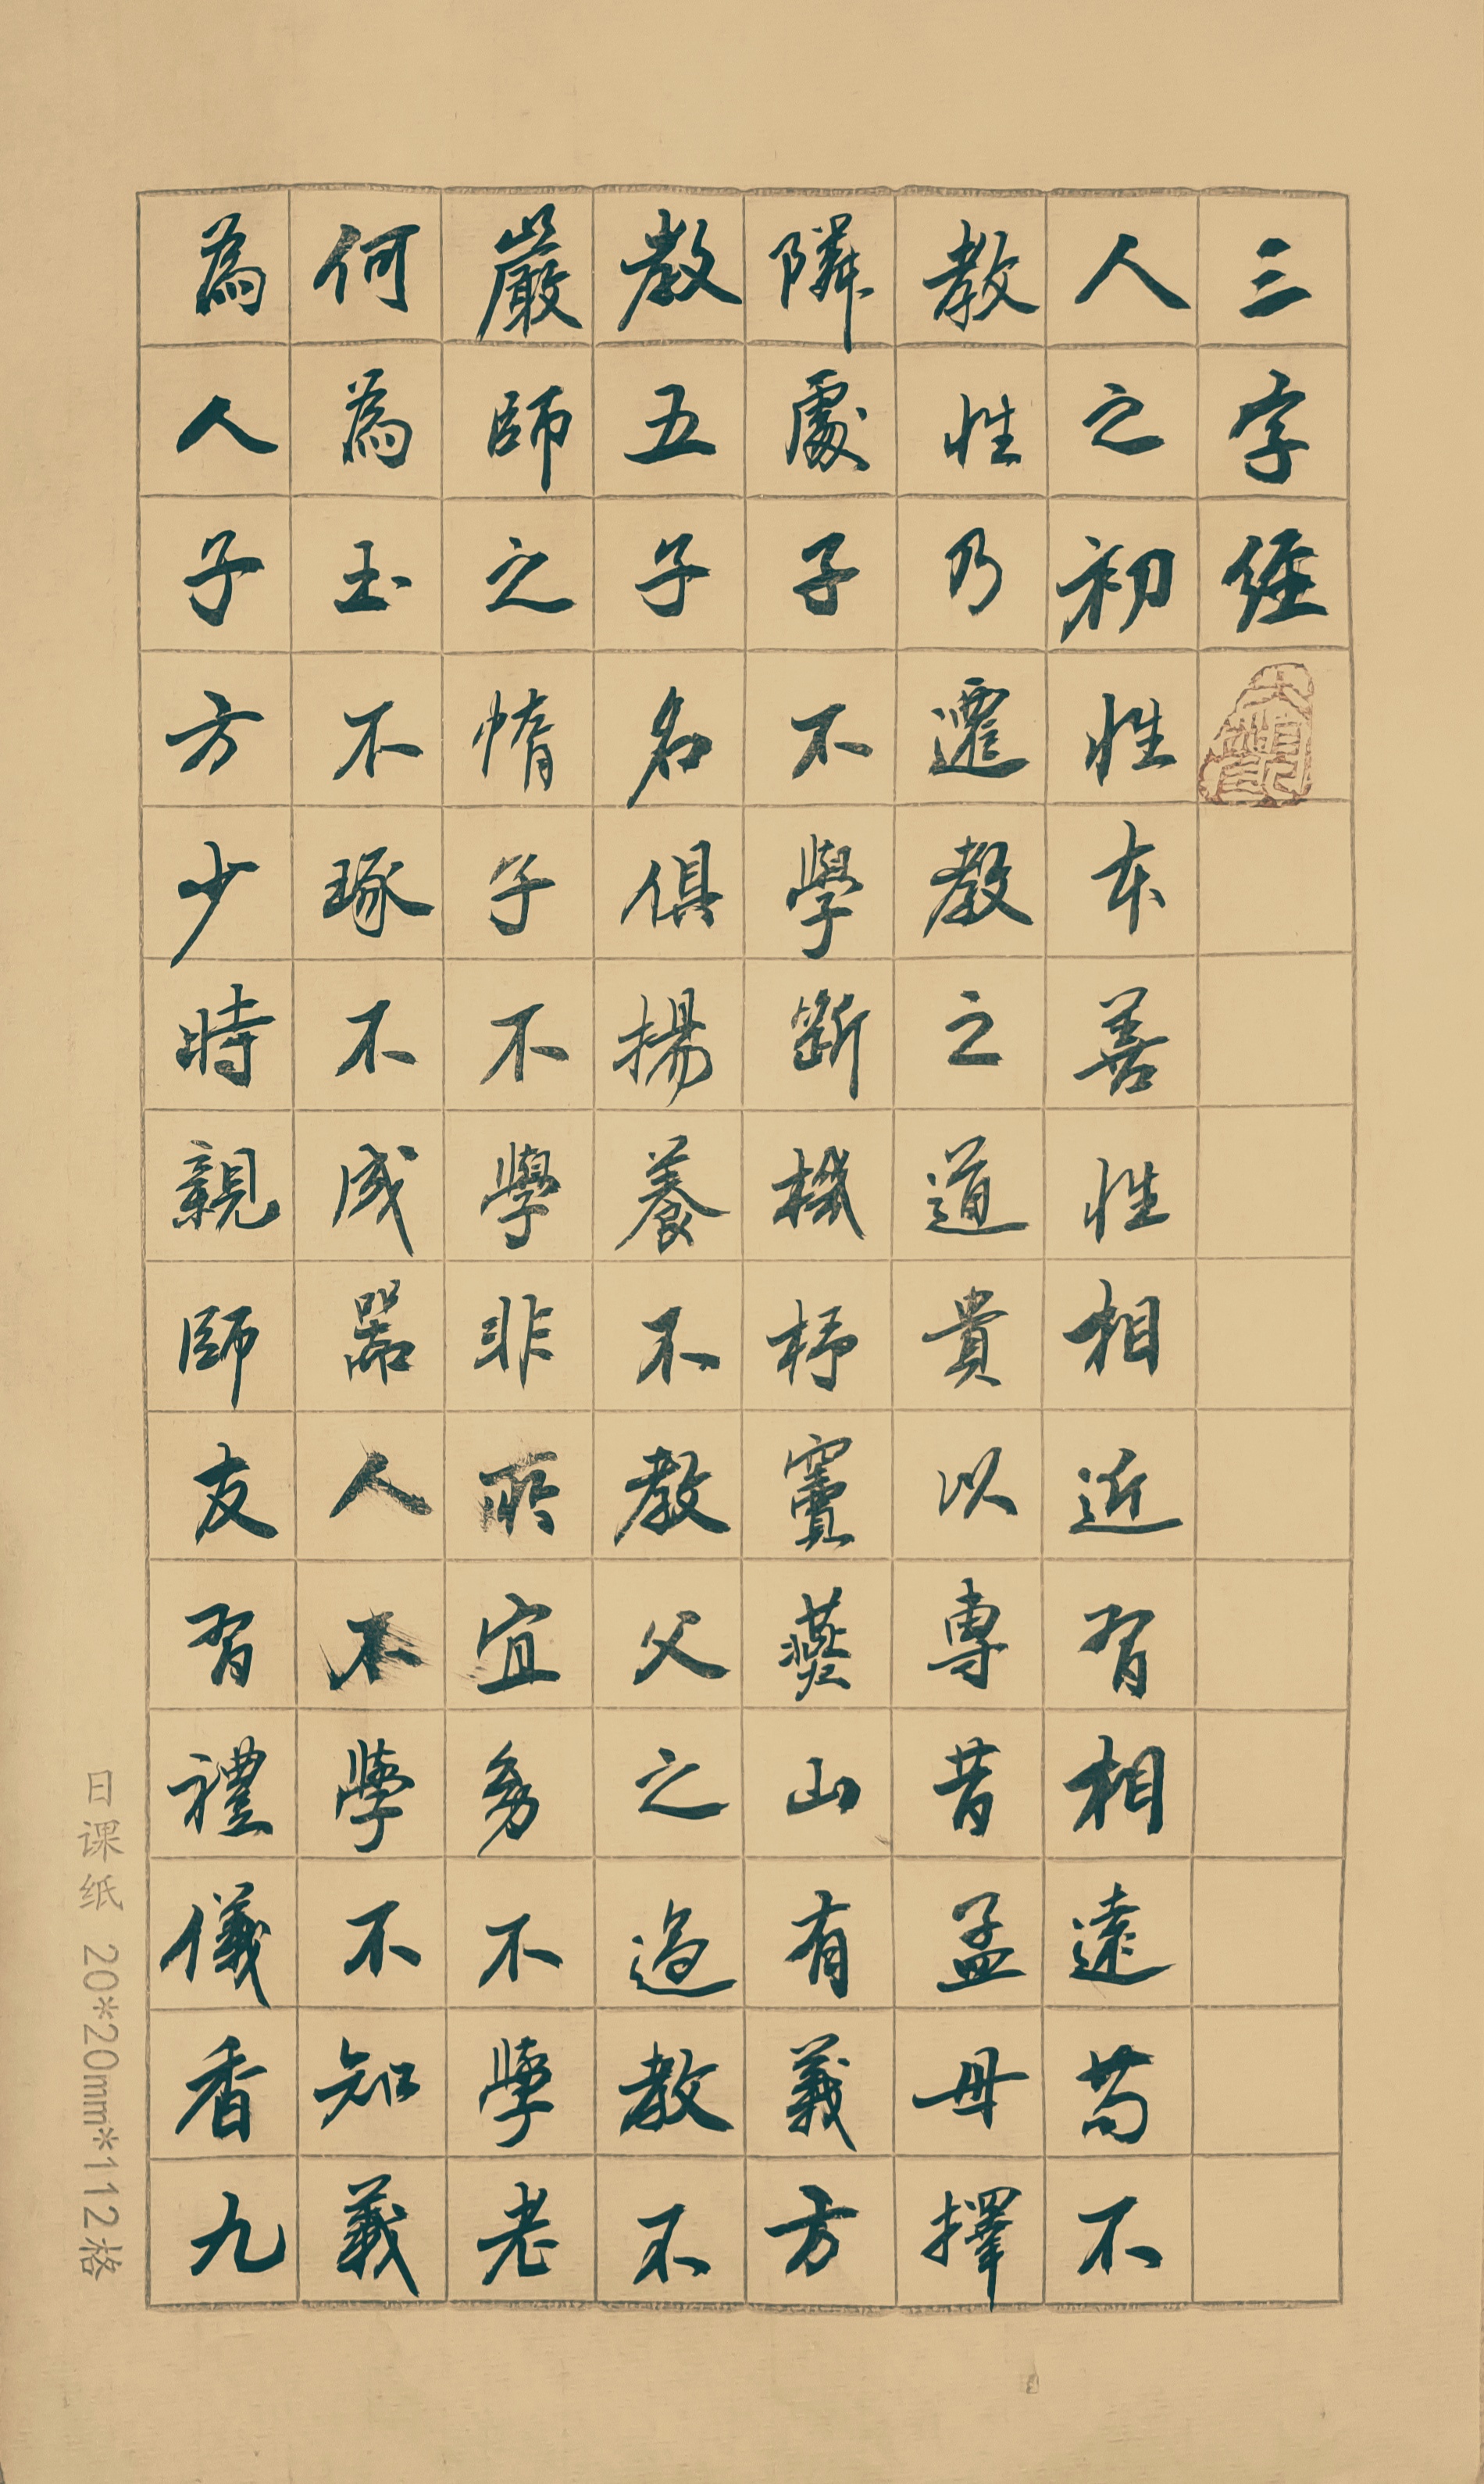 三字经
人之初性本善性相近習相遠苟不
教性乃遷教之道貴以專昔孟母擇
隣處子不學斷機杼竇燕山有義方
教五子名俱揚養不教父之過教不
嚴師之惰子不學非所宜幼不學老
何為玉不琢不成器人不學不知義
為人子方少時親師友習禮儀香九
日课纸 20*20mm*112格